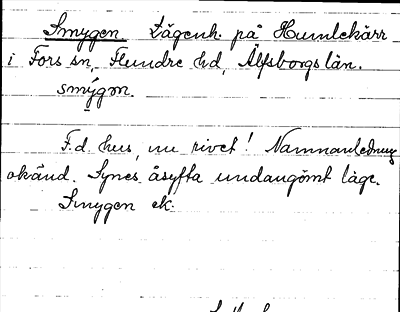 Smygen Lägenh. på Humlekärr
i Fors sn, Flundre hd, Älfsborgs län.
smýgən.
F.d. hus, nu rivet! Namnanledning
okänd. Synes åsyfta undangömt läge.
Smygen ek.